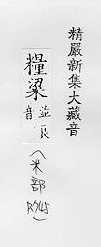 精嚴新集大藏音
糧粱
音 並良
(米部